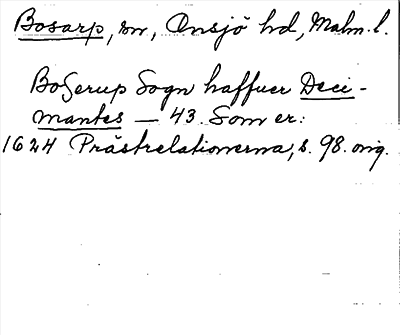 Bosarp, sn, Onsjö hd, Malm. l.
Boserup Sogn haffuer Deci-
mantes — 43. Som er:
1624 Prästrelationerna, s. 98. orig.